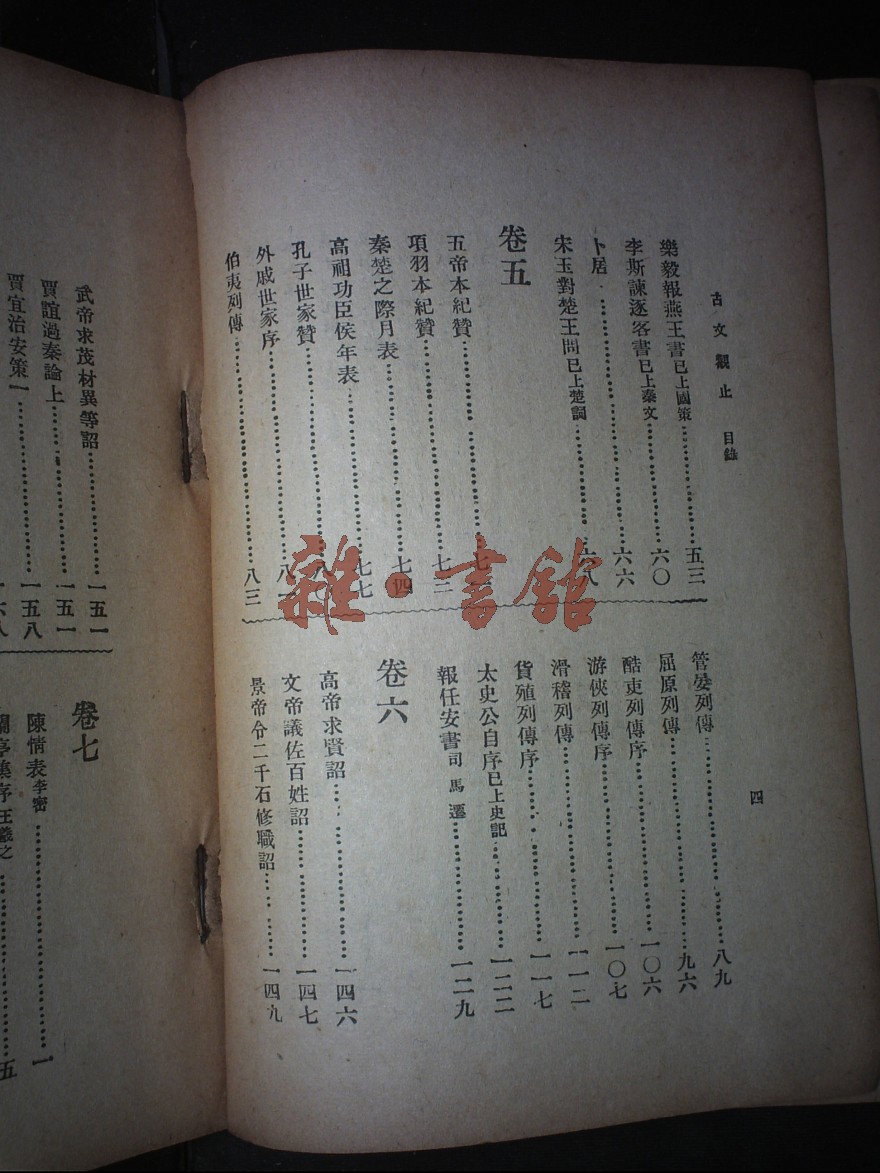 古文觀止 目錄
四
樂毅報燕王書已上國策……五三
李斯諫逐客書已上秦文……六〇
卜居……六六
宋玉對楚王問已上楚詞……六八
卷五
五帝本紀贊……七
項羽本紀贊……七二
秦楚之際月表……七四
高祖功臣侯年表……七七
孔子世家贊……八
外戚世家序……八
伯夷列傳……八三
管晏列傳……八九
屈原列傳……九六
酷吏列傳序……一〇六
游俠列傳序……一〇七
滑稽列傳……一一二
貨殖列傳序……一一七
太史公自序已上史記……一二二
報任安書司馬遷……一二九
卷六
高帝求賢詔……一四六
文帝議佐百姓詔……一四七
景帝令二千石修職詔……一四九
武帝求茂材異等詔……一五一
賈誼過秦論上……一五一
賈誼治安策一……一五八
一六八
卷七
陳情表李密……一
蘭亭集序王羲之……五
雜·書館